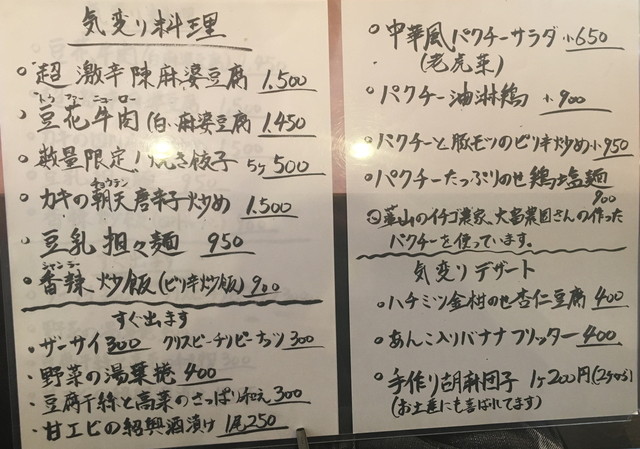 気変り料理
超激辛陳麻婆豆腐 1.500
トゥ ファー ニューロー
豆花牛肉(白・麻婆豆腐 1.450
数量限定!焼き餃子 5ヶ500
チョウテン
カキの朝天唐辛子炒め 1.500
豆乳担々麺 950
シャンラー
香辣炒飯(ピリ辛炒飯) 900
すぐ出ます
・ザーサイ300 クリスピーチリピーナッツ300
・野菜の湯葉捲 400
・豆腐干絲と高菜のさっぱり和え 300
・甘エビの紹興酒漬け 1尾250
中華風パクチーサラダ 小650
(老虎菜)
パクチー油淋鶏 小900
パクチーと豚モツのピリ辛炒め 小950
パクチーたっぷりのせ鶏塩麺
900
韮山のイチゴ農家、大富農園さんの作った
パクチーを使っています。
気変りデザート
ハチミツ金柑のせ杏仁豆腐 400
あんこ入りバナナフリッター 400
手作り胡麻団子 1ヶ200円(2ヶから)
(お土産にも喜ばれてます)